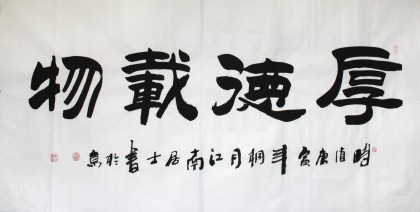 厚德載物
時值庚寅年桐月江南居士書於京